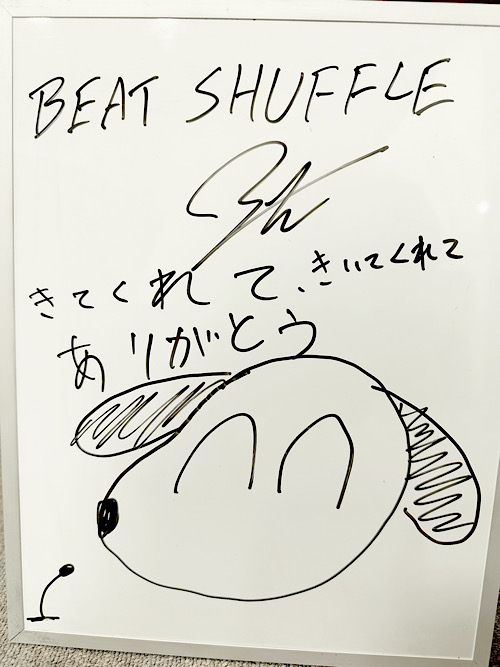 BEAT SHUFFLE
きてくれて、きいてくれて
ありがとう